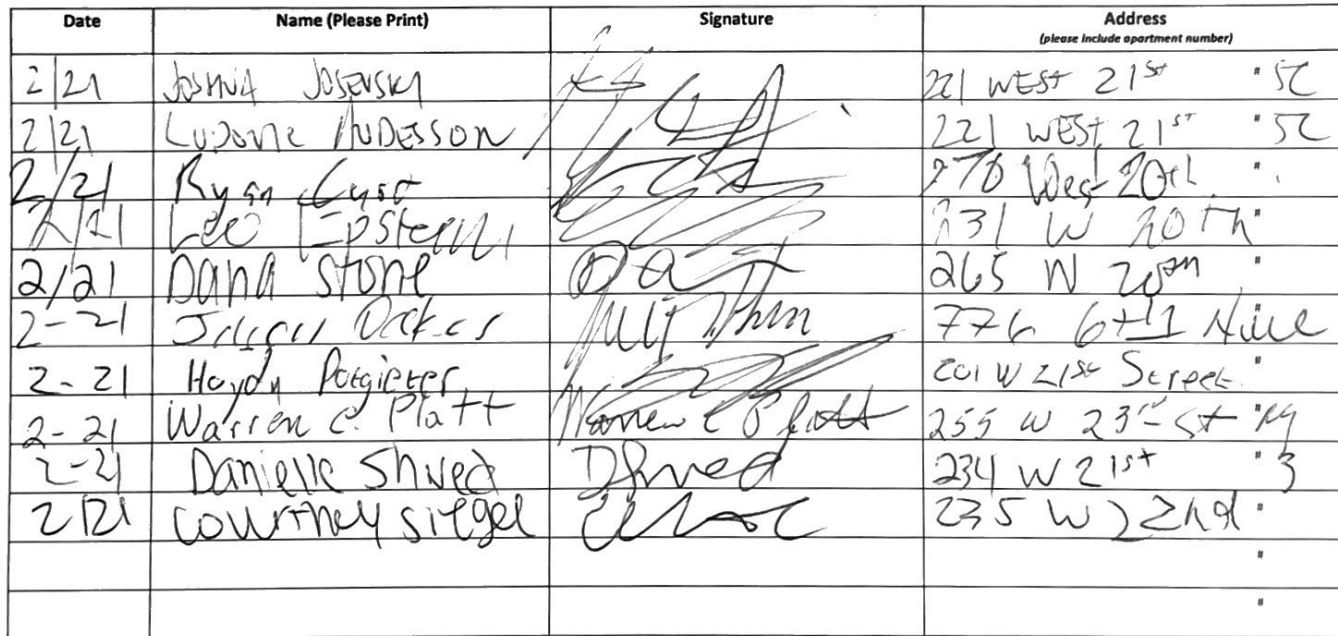 Date Name (Please Print) Signature Address
(please include apartment number)
2/21 JOSHUA JOSEVSKI 221 WEST 21st " 5C
2/21 HUDESSON 221 WEST 21st " 5C
2/21 Ryan 270 West 20th "
2/21 Leo Epstein 231 W 20th "
2/21 Dana Stone 265 W 20th "
2-21 776 6th "
2-21 Haydn Potgieter 201 W 21st Street "
2-21 Warren C. Platt Warren C Platt 255 W 23rd St "
2-21 Danielle Shved DShved 234 W 21st " 3
2/21 Courtney Siegel 235 W 22nd "
"
"